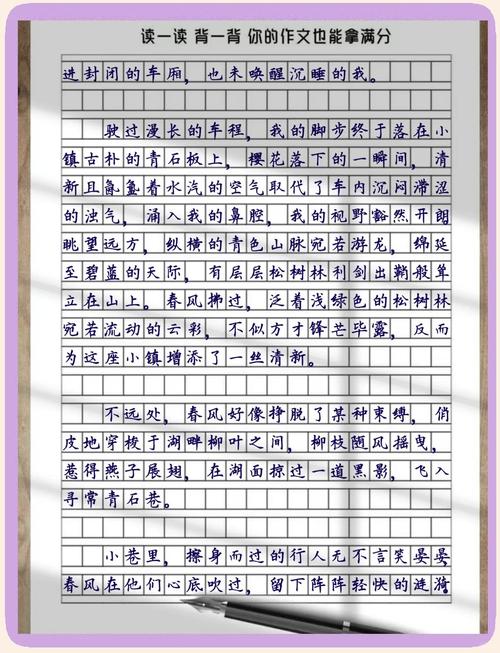 读一读 背一背 你的作文也能拿满分
进封闭的车厢，也未唤醒沉睡的我。
驶过漫长的车程，我的脚步终于落在小
镇古朴的青石板上，樱花落下的一瞬间，清
新且氤氲着水汽的空气取代了车内沉闷滞涩
的浊气，涌入我的鼻腔，我的视野豁然开朗
眺望远方，纵横的青色山脉宛若游龙，绵延
至碧蓝的天际，有层层松树林利剑出鞘般耸
立在山上。春风拂过，泛着浅绿色的松树林
宛若流动的云彩，不似方才锋芒毕露，反而
为这座小镇增添了一丝清新。
不远处，春风好像挣脱了某种束缚，俏
皮地穿梭于湖畔柳叶之间，柳枝随风摇曳，
惹得燕子展翅，在湖面掠过一道黑影，飞入
寻常青石巷。
小巷里，擦身而过的行人无不言笑晏晏
春风在他们心底吹过，留下阵阵轻快的涟漪